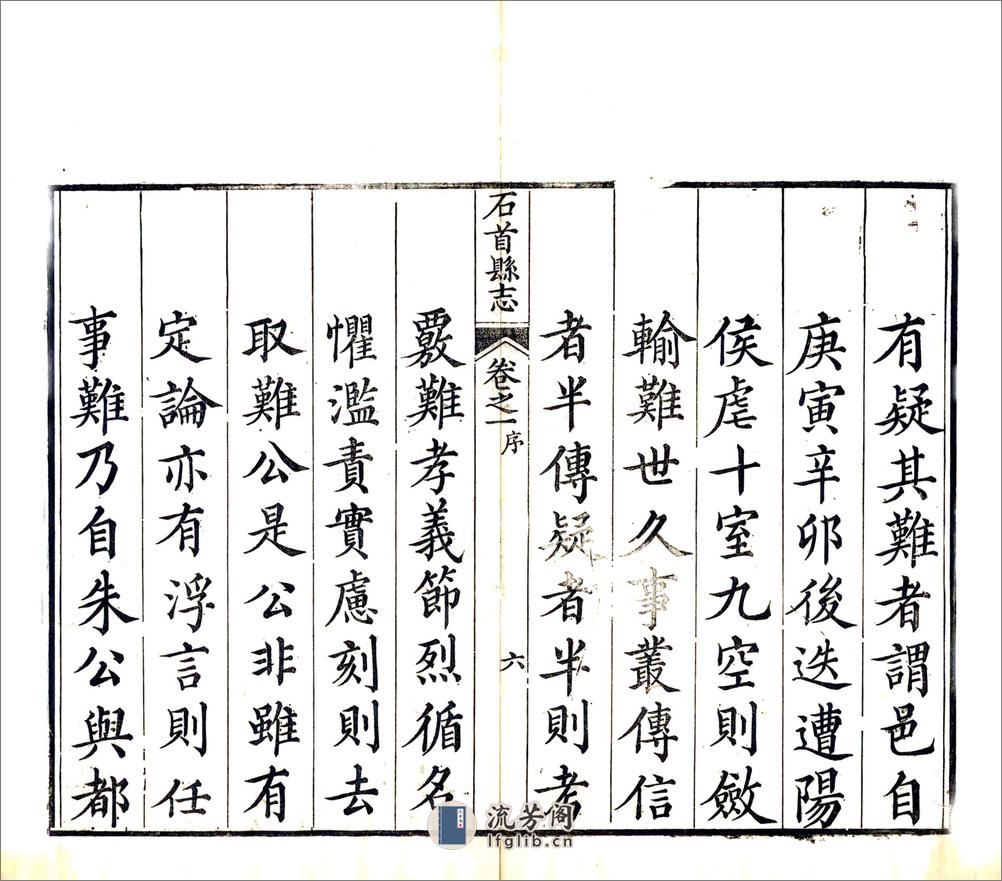 有疑其難者謂邑自
庚寅辛卯後迭遭陽
侯虐十室九空則斂
輸難世久事叢傳信
者半傳疑者半則考
石首縣志 卷之一 序 六
覈難孝義節烈循名
懼濫責實慮刻則去
取難公是公非雖有
定論亦有浮言則任
事難乃自朱公與都
流芳阁
lfglib.cn